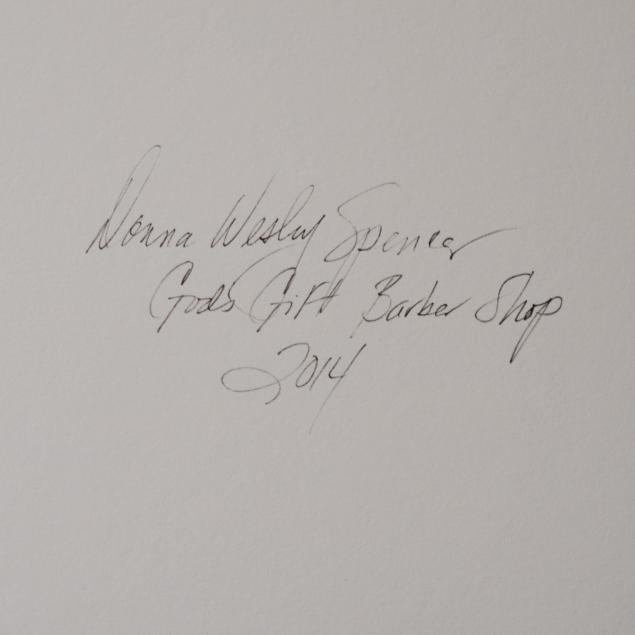 Donna Wesley Spencer
Gods Gift Barber Shop
2014